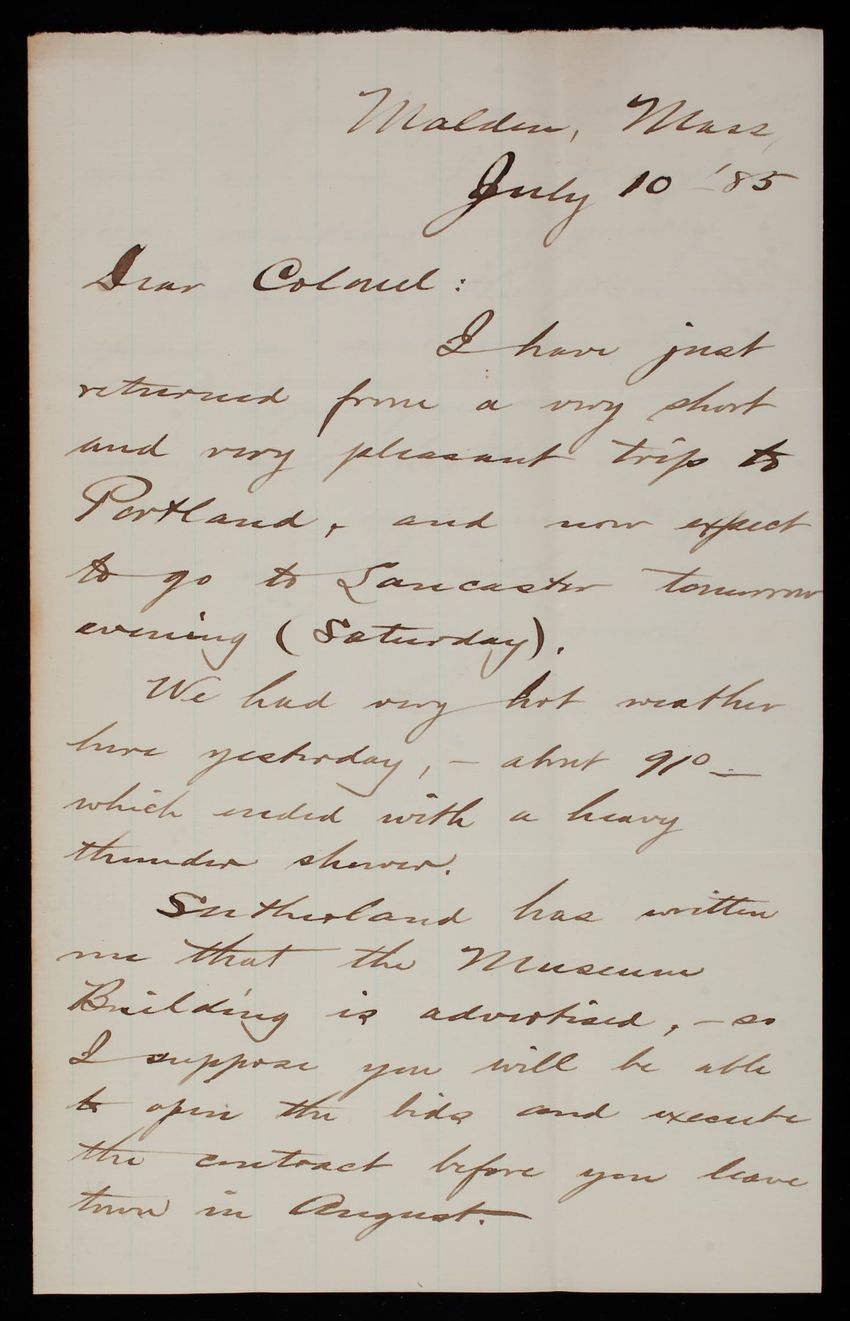 Malden, Mass,
July 10 '85
Dear Colonel:
I have just
returned from a very short
and very pleasant trip to
Portland, and now expect
to go to Lancaster tomorrow
evening (Saturday).
We had very hot weather
here yesterday, – about 91° –
which ended with a heavy
thunder shower.
Sutherland has written
me that the Museum
Building is advertised, – so
I suppose you will be able
to open the bids and execute
the contract before you leave
town in August. –